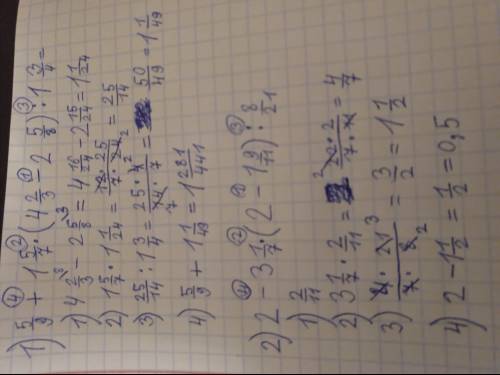 1) 5/9 + 1 5/7 · (4 2/3 - 2 5/8) : 1 3/4 =
1) 4 2/3 - 2 5/8 = 4 16/24 - 2 15/24 = 1 1/24
2) 1 5/7 · 1 1/24 = 12 · 25 / 7 · 24 = 25/14
3) 25/14 : 1 3/4 = 25 · 4 / 14 · 7 = 50/49 = 1 1/49
4) 5/9 + 1 1/49 = 1 281/441
2) 2 - 3 1/7 · (2 - 1 9/11) : 8/21
1) 2/11
2) 3 1/7 · 2/11 = 22 · 2 / 7 · 11 = 4/7
3) 4 · 21 / 7 · 8 = 3/2 = 1 1/2
4) 2 - 1 1/2 = 1/2 = 0,5